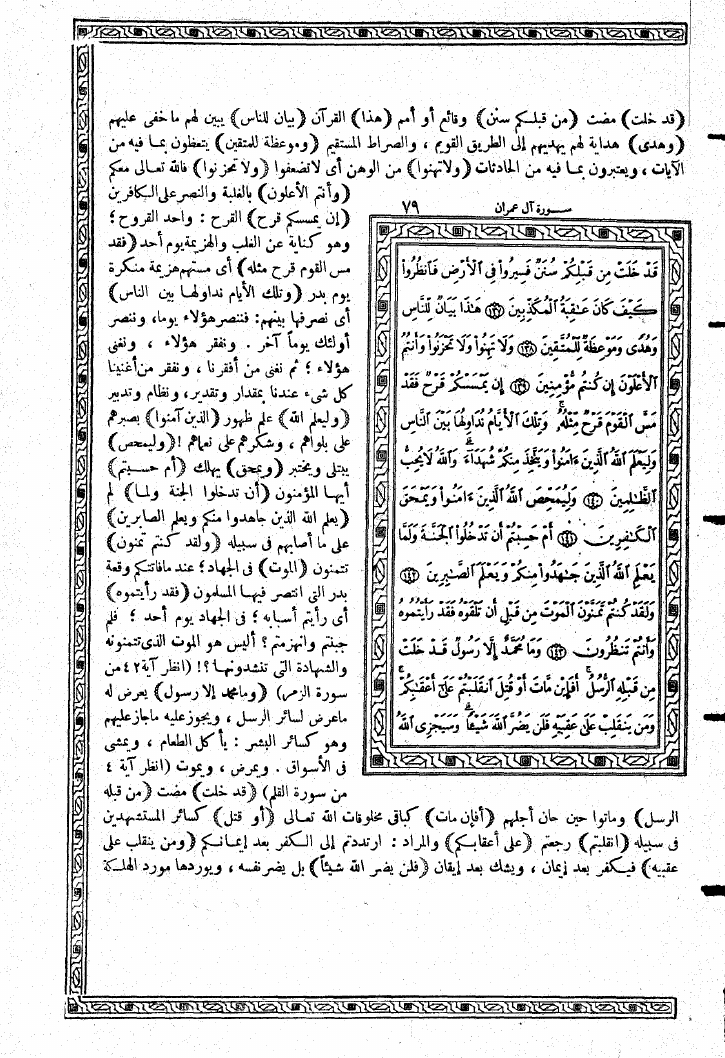 (قد خلت) مضت (من قبلكم سنن) وقائع أو أمم (هذا) القرآن (بيان للناس) يبين لهم ما خفى عليهم
(وهدى) هداية لهم يهديهم إلى الطريق القويم ، والصراط المستقيم (وموعظة للمتقين) يتعظون بما فيه من
الآيات ، ويعتبرون بما فيه من الحادثات (ولا تهنوا) من الوهن أى لا تضعفوا (ولا تحزنوا) فالله تعالى معكم
(وأنتم الأعلون) بالغلبة والنصر على الكافرين
(إن يمسسكم قرح) القرح : واحد القروح ؛
وهو كناية عن الغلب والهزيمة يوم أحد (فقد
مس القوم قرح مثله) أى مستهم هزيمة منكرة
يوم بدر (وتلك الأيام نداولها بين الناس)
أى نصرفها بينهم: فننصر هؤلاء يوما، وننصر
أولئك يوماً آخر . ونفقر هؤلاء ، ونغنى
هؤلاء ؛ ثم نغنى من أفقرنا ، ونفقر من أغنينا
كل شىء عندنا بمقدار وتقدير، ونظام وتدبير
(وليعلم الله) علم ظهور (الذين آمنوا) بصبرهم
على بلواهم ، وشكرهم على نعمائهم !(وليمحص)
يبتلى ويختبر (ويمحق) يهلك (أم حسبتم)
أيها المؤمنون (أن تدخلوا الجنة ولما) لم
(يعلم الله الذين جاهدوا منكم ويعلم الصابرين)
على ما أصابهم فى سبيله (ولقد كنتم تمنون)
تتمنون (الموت) فى الجهاد؛ عند ما فاتتكم وقعة
بدر التى انتصر فيها المسلمون (فقد رأيتموه)
أى رأيتم أسبابه ؛ فى الجهاد يوم أحد ؛ فلم
جبنتم وانهزمتم؟ أليس هو الموت الذى تتمنونه
والشهادة التى تنشدونها؟! (انظر آية ٤٢ من
سورة الزمر) (وما محمد إلا رسول) يعرض له
ما عرض لسائر الرسل ، ويجوز عليه ما جاز عليهم
وهو كسائر البشر : يأكل الطعام ، ويمشى
فى الأسواق . ويمرض ، ويموت (انظر آية ٤
من سورة القلم) (قد خلت) مضت (من قبله
سورة آل عمران ٧٩
قَدْ خَلَتْ مِن قَبْلِكُمْ سُنَنٌ فَسِيرُوا۟ فِى ٱلْأَرْضِ فَٱنظُرُوا۟
كَيْفَ كَانَ عَـٰقِبَةُ ٱلْمُكَذِّبِينَ ۝١٣٧ هَـٰذَا بَيَانٌ لِّلنَّاسِ
وَهُدًى وَمَوْعِظَةٌ لِّلْمُتَّقِينَ ۝١٣٨ وَلَا تَهِنُوا۟ وَلَا تَحْزَنُوا۟ وَأَنتُمُ
ٱلْأَعْلَوْنَ إِن كُنتُم مُّؤْمِنِينَ ۝١٣٩ إِن يَمْسَسْكُمْ قَرْحٌ فَقَدْ
مَسَّ ٱلْقَوْمَ قَرْحٌ مِّثْلُهُۥ وَتِلْكَ ٱلْأَيَّامُ نُدَاوِلُهَا بَيْنَ ٱلنَّاسِ
وَلِيَعْلَمَ ٱللَّهُ ٱلَّذِينَ ءَامَنُوا۟ وَيَتَّخِذَ مِنكُمْ شُهَدَآءَ وَٱللَّهُ لَا يُحِبُّ
ٱلظَّـٰلِمِينَ ۝١٤٠ وَلِيُمَحِّصَ ٱللَّهُ ٱلَّذِينَ ءَامَنُوا۟ وَيَمْحَقَ
ٱلْكَـٰفِرِينَ ۝١٤١ أَمْ حَسِبْتُمْ أَن تَدْخُلُوا۟ ٱلْجَنَّةَ وَلَمَّا
يَعْلَمِ ٱللَّهُ ٱلَّذِينَ جَـٰهَدُوا۟ مِنكُمْ وَيَعْلَمَ ٱلصَّـٰبِرِينَ ۝١٤٢
وَلَقَدْ كُنتُمْ تَمَنَّوْنَ ٱلْمَوْتَ مِن قَبْلِ أَن تَلْقَوْهُ فَقَدْ رَأَيْتُمُوهُ
وَأَنتُمْ تَنظُرُونَ ۝١٤٣ وَمَا مُحَمَّدٌ إِلَّا رَسُولٌ قَدْ خَلَتْ
مِن قَبْلِهِ ٱلرُّسُلُ أَفَإِي۟ن مَّاتَ أَوْ قُتِلَ ٱنقَلَبْتُمْ عَلَىٰٓ أَعْقَـٰبِكُمْ
وَمَن يَنقَلِبْ عَلَىٰ عَقِبَيْهِ فَلَن يَضُرَّ ٱللَّهَ شَيْـًٔا وَسَيَجْزِى ٱللَّهُ
الرسل) وماتوا حين حان أجلهم (أفإن مات) كباقى مخلوقات الله تعالى (أو قتل) كسائر المستشهدين
فى سبيله (انقلبتم) رجعتم (على أعقابكم) والمراد : ارتددتم إلى الكفر بعد إيمانكم (ومن ينقلب على
عقبيه) فيكفر بعد إيمان ، ويشك بعد إيقان (فلن يضر الله شيئاً) بل يضر نفسه ، ويوردها مورد الهلكة